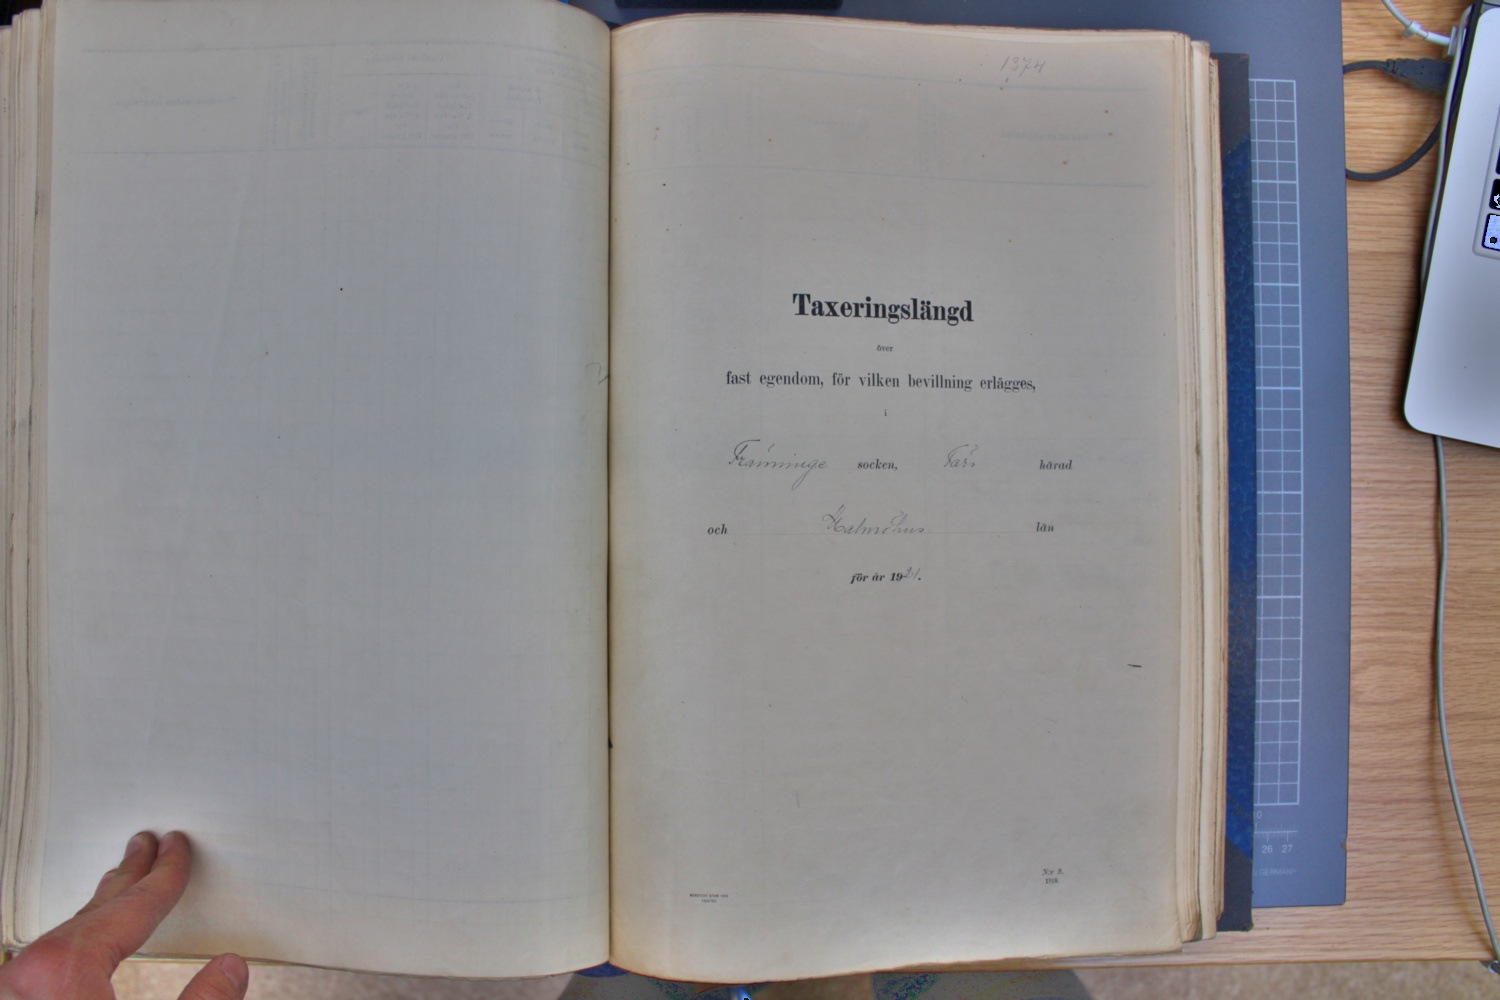 1374
Taxeringslängd
över
fast egendom, för vilken bevillning erlägges,
i
Fränninge socken, Färs härad
och Malmöhus län
för år 1921.
N:r 8.
1918
26 27
GERMANY